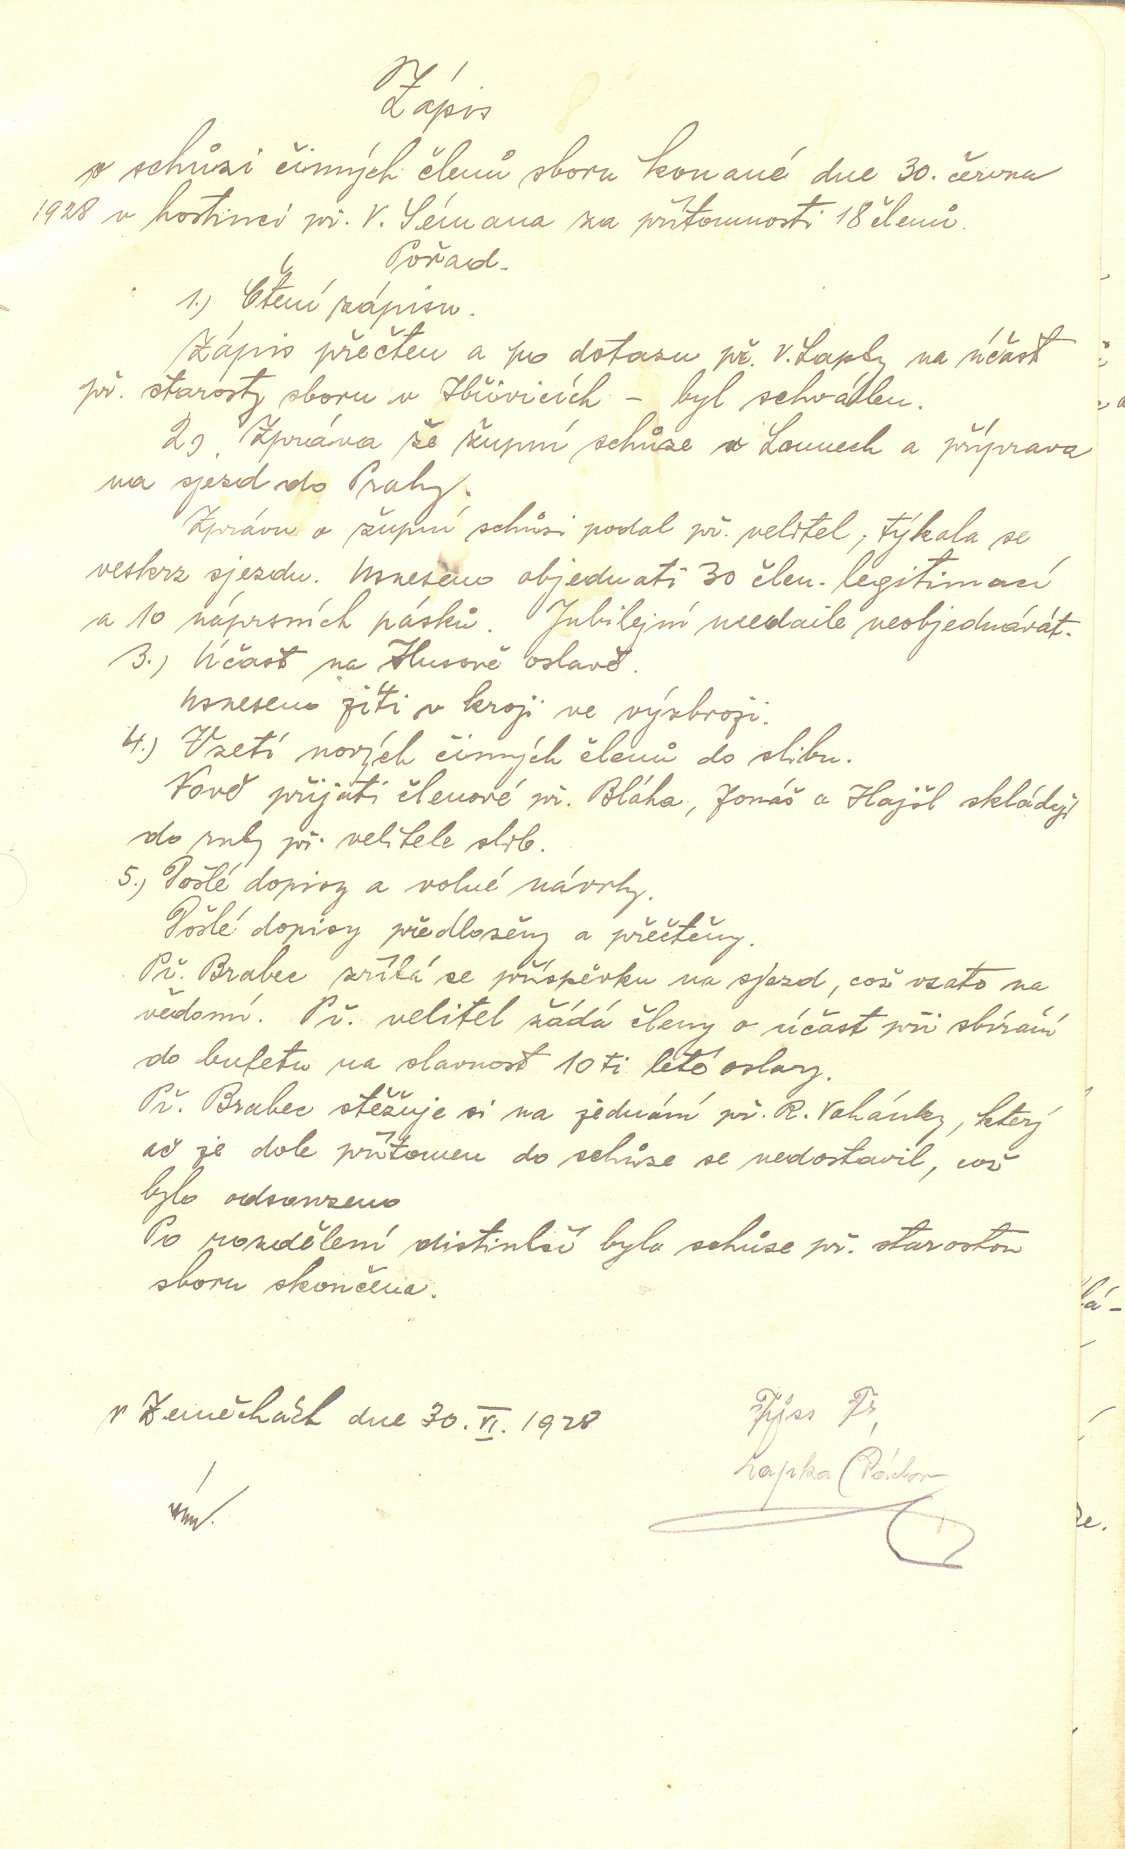 Zápis
o schůzi činných členů sboru konané dne 30. června
1928 v hostinci př. V. Sémana za přítomnosti 18 členů.
Pořad.
1.) Čtení zápisu.
Zápis přečten a po dotazu př. V. Lapky na účast
př. starosty sboru v Hřivicích – byl schválen.
2) Zpráva ze župní schůze v Lounech a příprava
na sjezd do Prahy.
Zprávu o župní schůzi podal př. velitel, týkala se
veskrz sjezdu. Usneseno objednati 30 člen. legitimací
a 10 náprsních pásků. Jubilejní medaile neobjednávát.
3.) Účast na Husově oslavě.
Usneseno jíti v kroji ve výzbroji.
4.) Vzetí nových činných členů do slibu.
Nově přijatí členové př. Bláha, Jonáš a Hajšl skládají
do ruky př. velitele slib.
5.) Došlé dopisy a volné návrhy.
Došlé dopisy předloženy a přečteny.
Př. Brabec zříká se příspěvku na sjezd, což vzato na
vědomí. Př. velitel žádá členy o účast při sbírání
do bufetu na slavnost 10 ti leté oslavy.
Př. Brabec stěžuje si na jednání př. R. Vahánky, který
ač je dole přítomen do schůze se nedostavil, což
bylo odsouzeno
Po rozdělení distinkcí byla schůze př. starostou
sboru skončena.
v Zeměchách dne 30. VI. 1928
Lapka